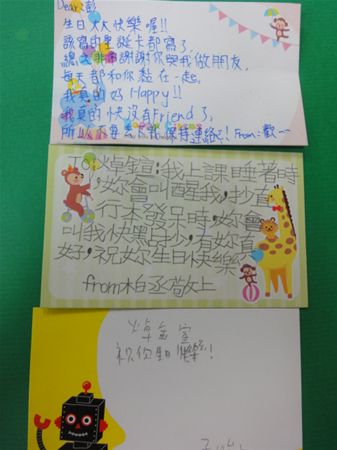 Dear:彭
生日ㄊㄊ快樂喔!!
該寫的聖誕卡都寫了,
總之非常謝謝你與我做朋友,
每天都和你黏在一起。
我真的好Happy!!
我真的快沒有Friend了,
所以 保持連絡ㄛ! From:歡~~
TO焯鍹:我上課睡著時
,妳會叫醒我,抄直
行本發呆時,妳會
叫我快點抄,有妳真
好,祝妳生日快樂
from 柏丞敬上
焯
祝你生日快樂!